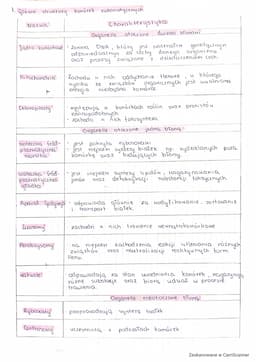 1. Główne struktury komórek eukariotycznych
Nazwa
Charakterystyka
Organella otoczone dwiema błonami
Jądro komórkowe
zawiera DNA, który jest materiałem genetycznym
odpowiedzialnym za cechy danego organizmu
oraz procesy związane z dziedziczeniem cech
Mitochondrium
zachodzi w nich oddychanie tlenowe, w którego
wyniku ze związków organicznych jest uwalniana
energia niezbędna komórce
Chloroplasty
występują w komórkach roślin oraz protistów
zachodzi w nich fotosynteza
Organella otoczone jedną błoną
jest pokryta rybosomami
jest miejscem syntezy białek np. wydzielanych poza
komórkę oraz budujących błony
jest miejscem syntezy lipidów,
oraz detoksykacji substancji toksycznych
Aparat Golgiego
odpowiada głównie za modyfikowanie, sortowanie
i transport białek
Lizosomy
zachodzi w nich trawienie wewnątrzkomórkowe
Peroksysomy
są miejscem zachodzenia reakcji utleniania różnych
związków oraz neutralizacji reaktywnych form
tlenu
Wakuole
odpowiadają za stan uwodnienia komórek, magazynują
różne substancje oraz biorą udział w procesie
trawienia
Organella nieotoczone błoną
Rybosomy
przeprowadzają syntezę białek
uczestniczą w podziałach komórek
Zeskanowane w CamScanner